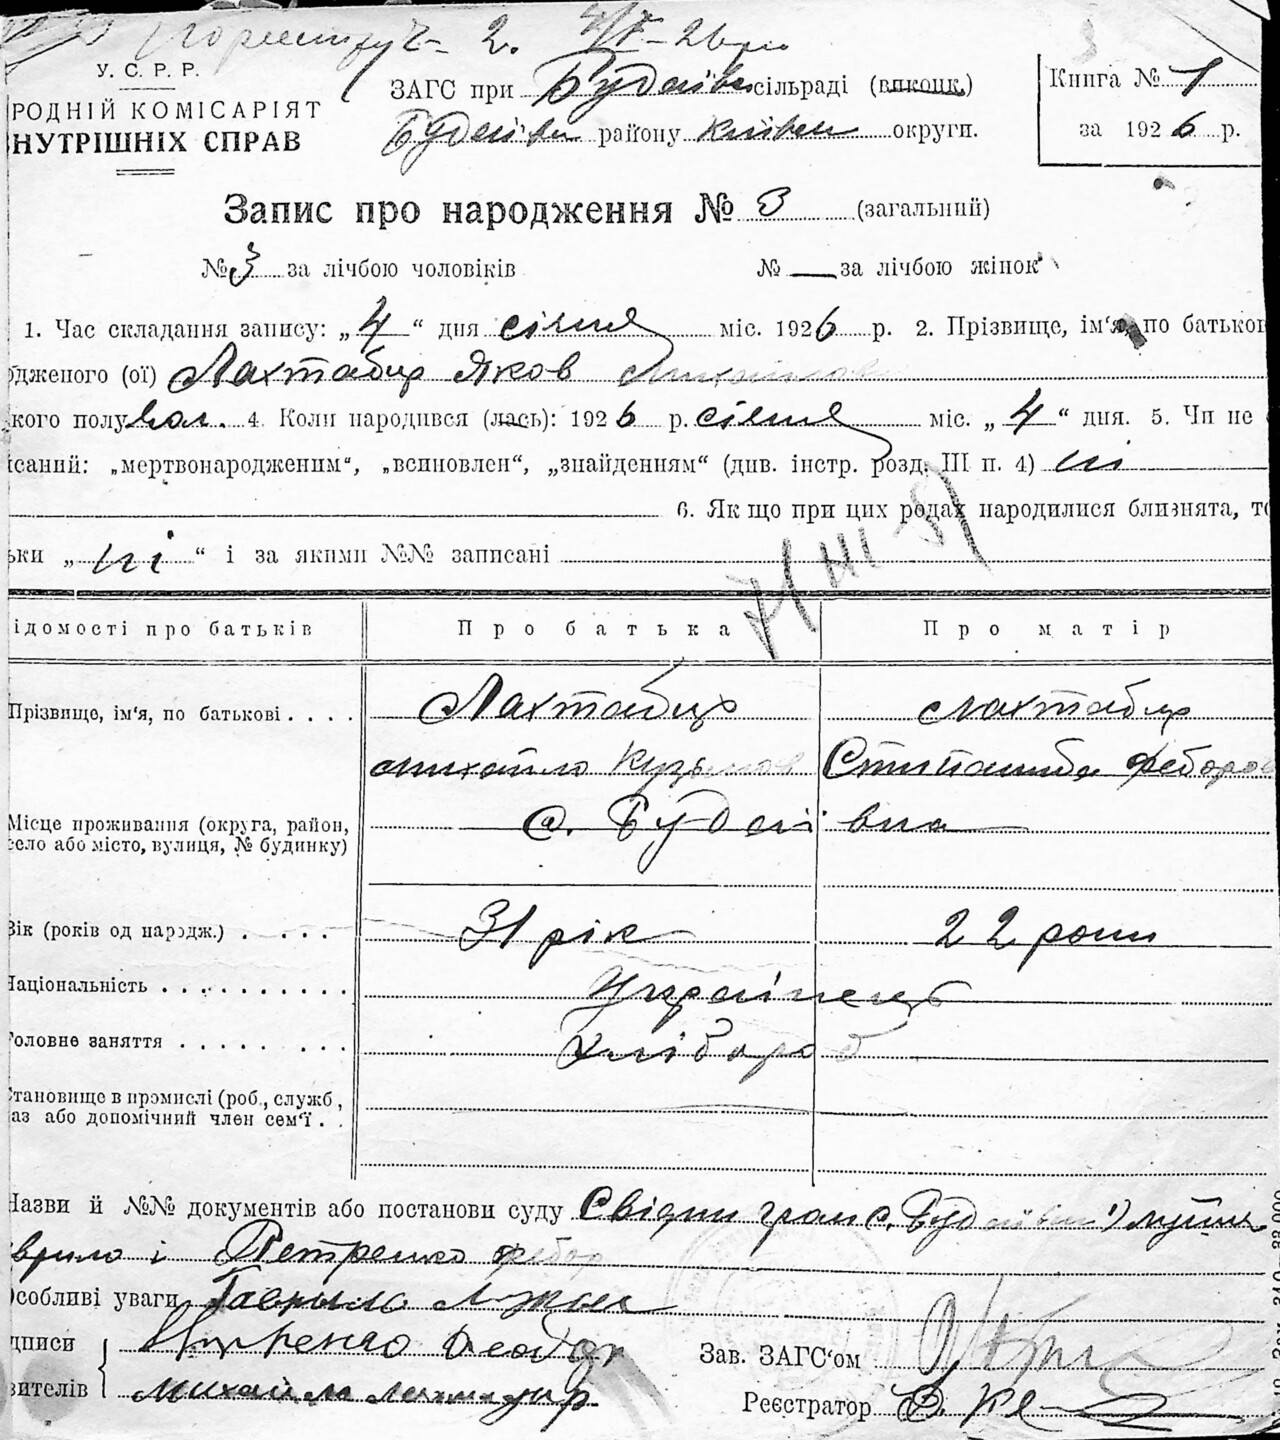 2.
У. С. Р. Р.
РОДНІЙ КОМІСАРІЯТ
НУТРІШНІХ СПРАВ
ЗАГС при Будаївській сільраді (виконк.)
Будаївськ району Київськ округи.
Книга № 1
за 1926 р.
Запис про народження № 3 (загальний)
№ 3 за лічбою чоловіків № — за лічбою жінок
1. Час складання запису: „4“ дня січня міс. 1926 р. 2. Прізвище, ім'я, по батьков
дженого (ої) Лахтадир Яков Михайлов
кого полу чол. 4. Коли народився (лась): 1926 р. січня міс. „4“ дня. 5. Чи не
исаний: „мертвонародженим“, „всиновлен“, „знайденням“ (див. інстр. розд. III п. 4) ні
6. Якщо при цих родах народилися близнята, то
ьки „ні“ і за якими №№ записані
ідомості про батьків Про батька Про матір
Прізвище, ім'я, по батькові . . . . Лахтадир Лахтадир
Михайло Кузьмов Степанида Федоров
Місце проживання (округа, район,
село або місто, вулиця, № будинку) с. Будаївка
Вік (років од нарздж.) . . . . 31 рік 22 роки
Національність . . . . . . . . . . Українець
Головне заняття . . . . . . . . Хлібороб
Становище в промислі (роб., служб.,
аз або допомічний член сем'ї . .
Назви й №№ документів або постанови суду Свідки гром с. Будаївки 1)
врило і Петренко Федор
Особливі уваги Гаврило
дписи Петренко Феодор
вителів Михайло Лахтадир
Зав. ЗАГС'ом
Реєстратор